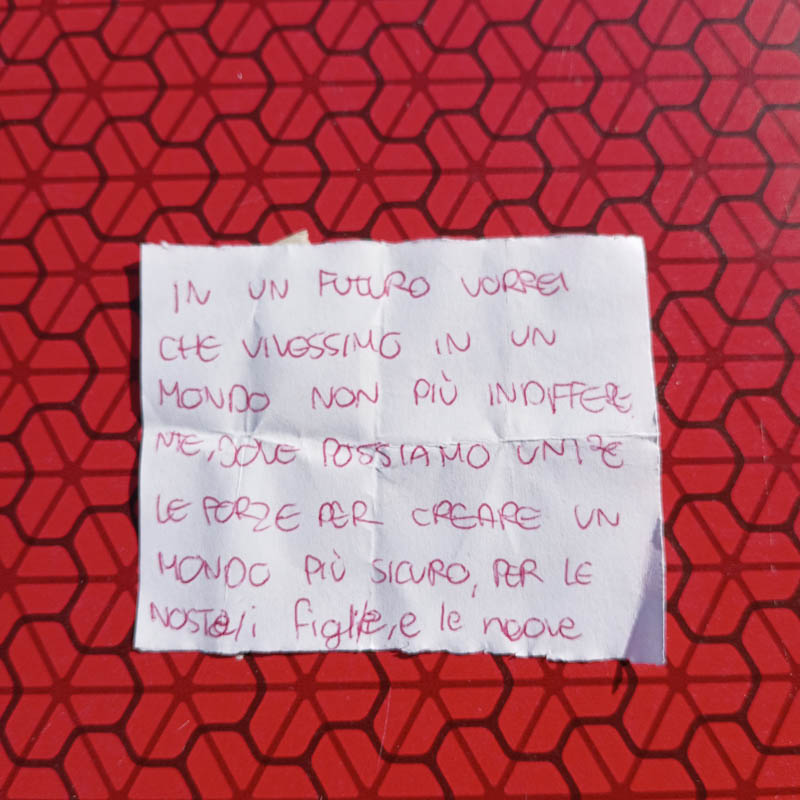 IN UN FUTURO VORREI
CHE VIVESSIMO IN UN
MONDO NON PIÙ INDIFFERE
NTE, DOVE POSSIAMO UNIRE
LE FORZE PER CREARE UN
MONDO PIÙ SICURO, PER LE
NOSTRE/i figlie, e le nuove